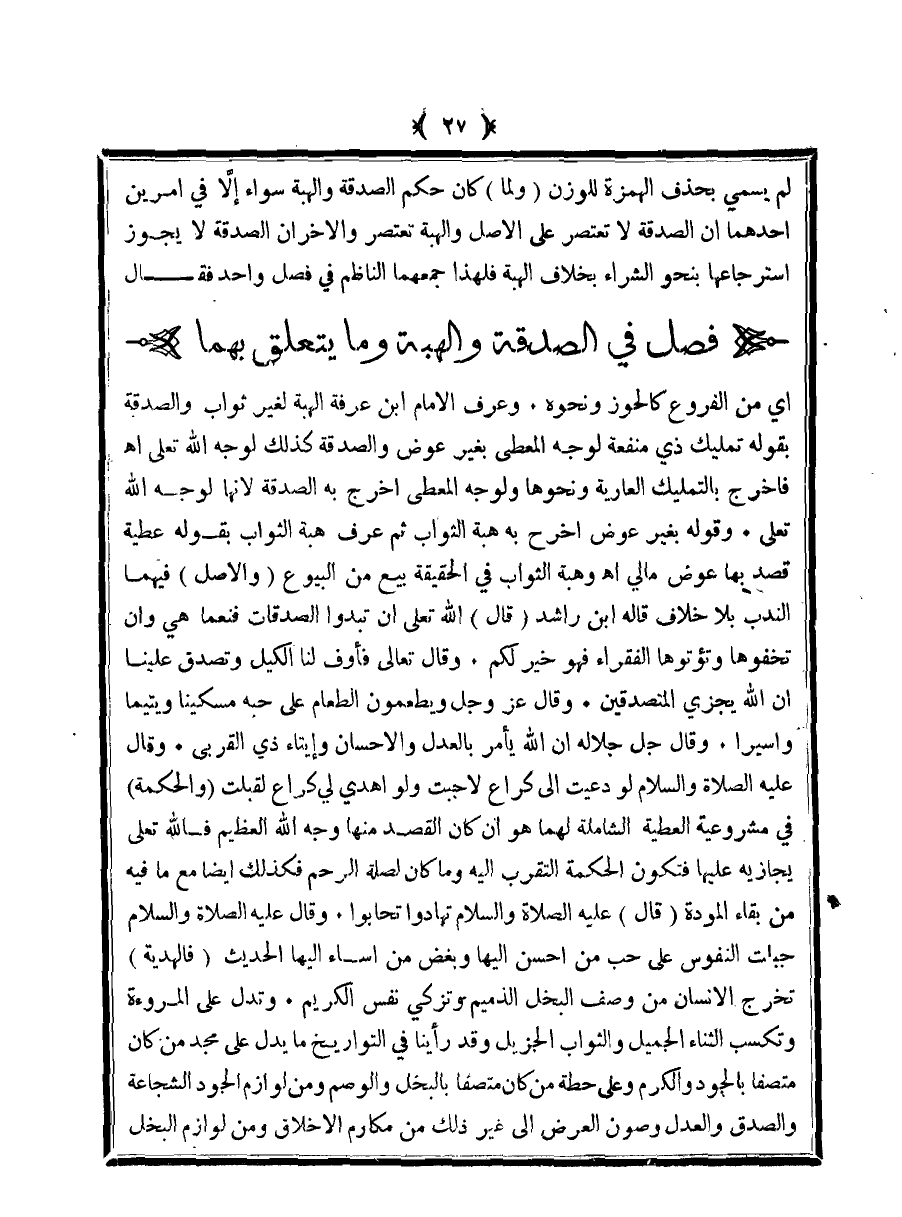 ﴿ ٢٧ ﴾
لم يسمي بحذف الهمزة للوزن ( ولما ) كان حكم الصدقة والهبة سواء إلّا في امرين
احدهما ان الصدقة لا تعتصر على الاصل والهبة تعتصر والاخر ان الصدقة لا يجـوز
استرجاعها بنحو الشراء بخلاف الهبة فلهذا جمعهما الناظم في فصل واحد فقـــــال
فصل في الصدقة والهبة وما يتعلق بهما
اي من الفروع كالحوز ونحوه ٠ وعرف الامام ابن عرفة الهبة لغير ثواب والصدقة
بقوله تمليك ذي منفعة لوجه المعطى بغير عوض والصدقة كذلك لوجه الله تعلى اه
فاخرج بالتمليك العارية ونحوها ولوجه المعطى اخرج به الصدقة لانها لوجـه الله
تعلى ٠ وقوله بغير عوض اخرج به هبة الثواب ثم عرف هبة الثواب بقـوله عطية
قصد بها عوض مالي اه وهبة الثواب في الحقيقة بيع من البيوع ( والاصل ) فيهما
الندب بلا خلاف قاله ابن راشد ( قال ) الله تعلى ان تبدوا الصدقات فنعما هي وان
تخفوها وتؤتوها الفقراء فهو خير لكم ٠ وقال تعالى فأوف لنا الكيل وتصدق علينـا
ان الله يجزي المتصدقين ٠ وقال عز وجل ويطعمون الطعام على حبه مسكينا ويتيما
واسيرا ٠ وقال جل جلاله ان الله يأمر بالعدل والاحسان وإيتاء ذي القربى ٠ وقال
عليه الصلاة والسلام لو دعيت الى كراع لاجبت ولو اهدي لي كراع لقبلت (والحكمة)
في مشروعية العطية الشاملة لهما هو ان كان القصـد منها وجه الله العظيم فـالله تعلى
يجازيه عليها فتكون الحكمة التقرب اليه وما كان لصلة الرحم فكذلك ايضا مع ما فيه
من بقاء المودة ( قال ) عليه الصلاة والسلام تهادوا تحابوا ٠ وقال عليه الصلاة والسلام
جبلت النفوس على حب من احسن اليها وبغض من اسـاء اليها الحديث ( فالهدية )
تخرج الانسان من وصف البخل الذميم وتزكي نفس الكريم ٠ وتدل على المـروءة
وتكسب الثناء الجميل والثواب الجزيل وقد رأينا في التواريخ ما يدل على مجد من كان
متصفا بالجود والكرم وعلى حطة من كان متصفا بالبخل والوصم ومن لوازم الجود الشجاعة
والصدق والعدل وصون العرض الى غير ذلك من مكارم الاخلاق ومن لوازم البخل